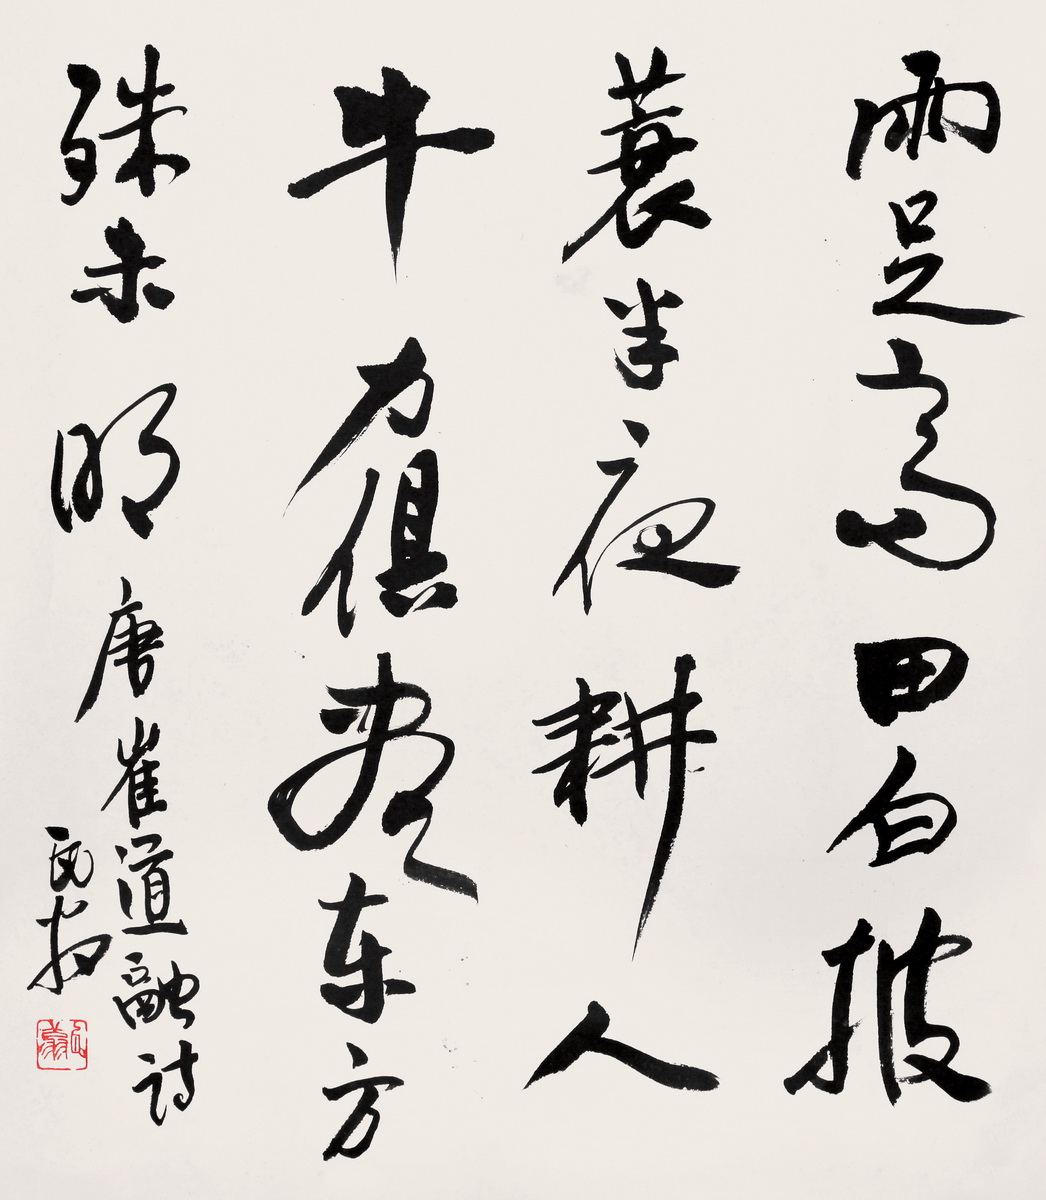 雨足高田白披
蓑半夜耕人
牛力俱盡东方
殊未明 唐崔道融诗